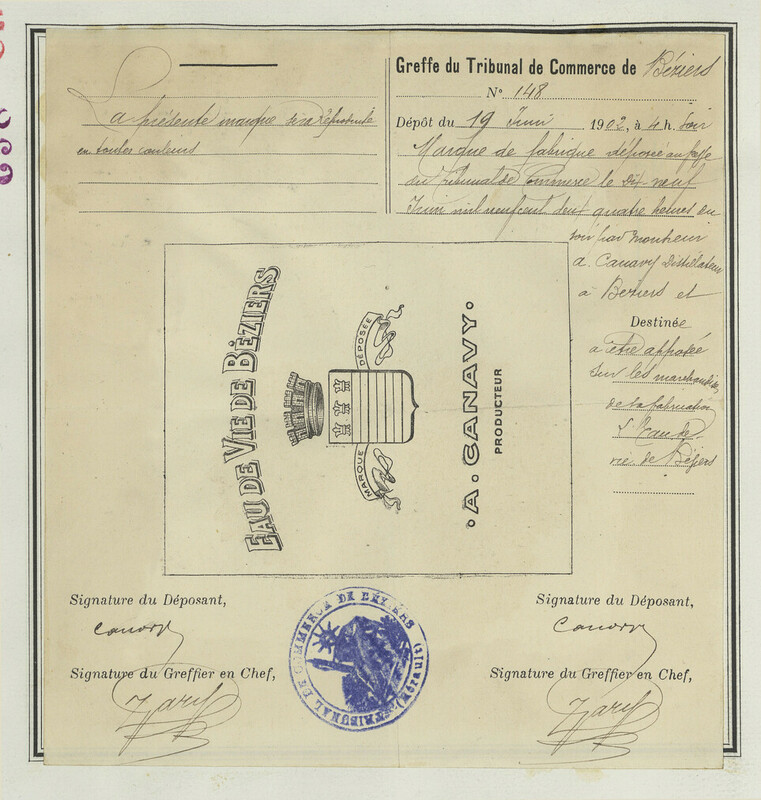 La présente marque sera reproduite
en toutes couleurs
Greffe du Tribunal de Commerce de Béziers
N° 148
Dépôt du 19 Juin 1902, à 4 h. Soir
Marque de fabrique déposée au greffe
du Tribunal de Commerce le Dix neuf
Juin mil neuf cent deux quatre heures du
soir par Monsieur
A. Canavy Distillateur
à Béziers et
Destinée
a être apposée
sur les marchandises
de sa fabrication
Eau de
vie de Béziers
EAU DE VIE DE BÉZIERS
MARQUE DÉPOSÉE
A. CANAVY
PRODUCTEUR
Signature du Déposant,
Canavy
Signature du Greffier en Chef,
TRIBUNAL DE COMMERCE DE BÉZIERS (Hérault)
Signature du Déposant,
Canavy
Signature du Greffier en Chef,